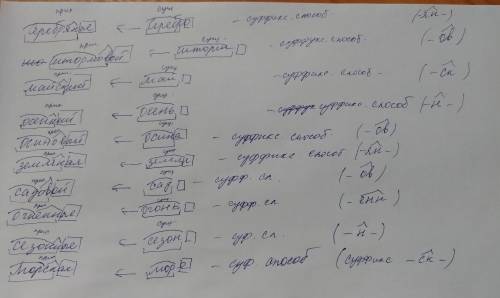 прил сущ
серебряные ← серебро - суффикс. способ (-ян-)
прил сущ
штормовой ← шторм - суффикс. способ (-ов-)
прил сущ
майский ← май - суффикс. способ (-ск-)
прил сущ
осенний ← осень суффикс. способ (-н-)
прил сущ
осиновый ← осина - суффикс способ (-ов-)
прил сущ
земляная ← земля - суффикс способ (-ян-)
прил сущ
садовой ← сад - суфф. сп. (-ов-)
прил сущ
огненные ← огонь - суфф. сп. (-енн-)
прил сущ
сезонные ← сезон - суф. сп. (-н-)
прил сущ
Морская ← море - суф способ (суффикс -ск-)